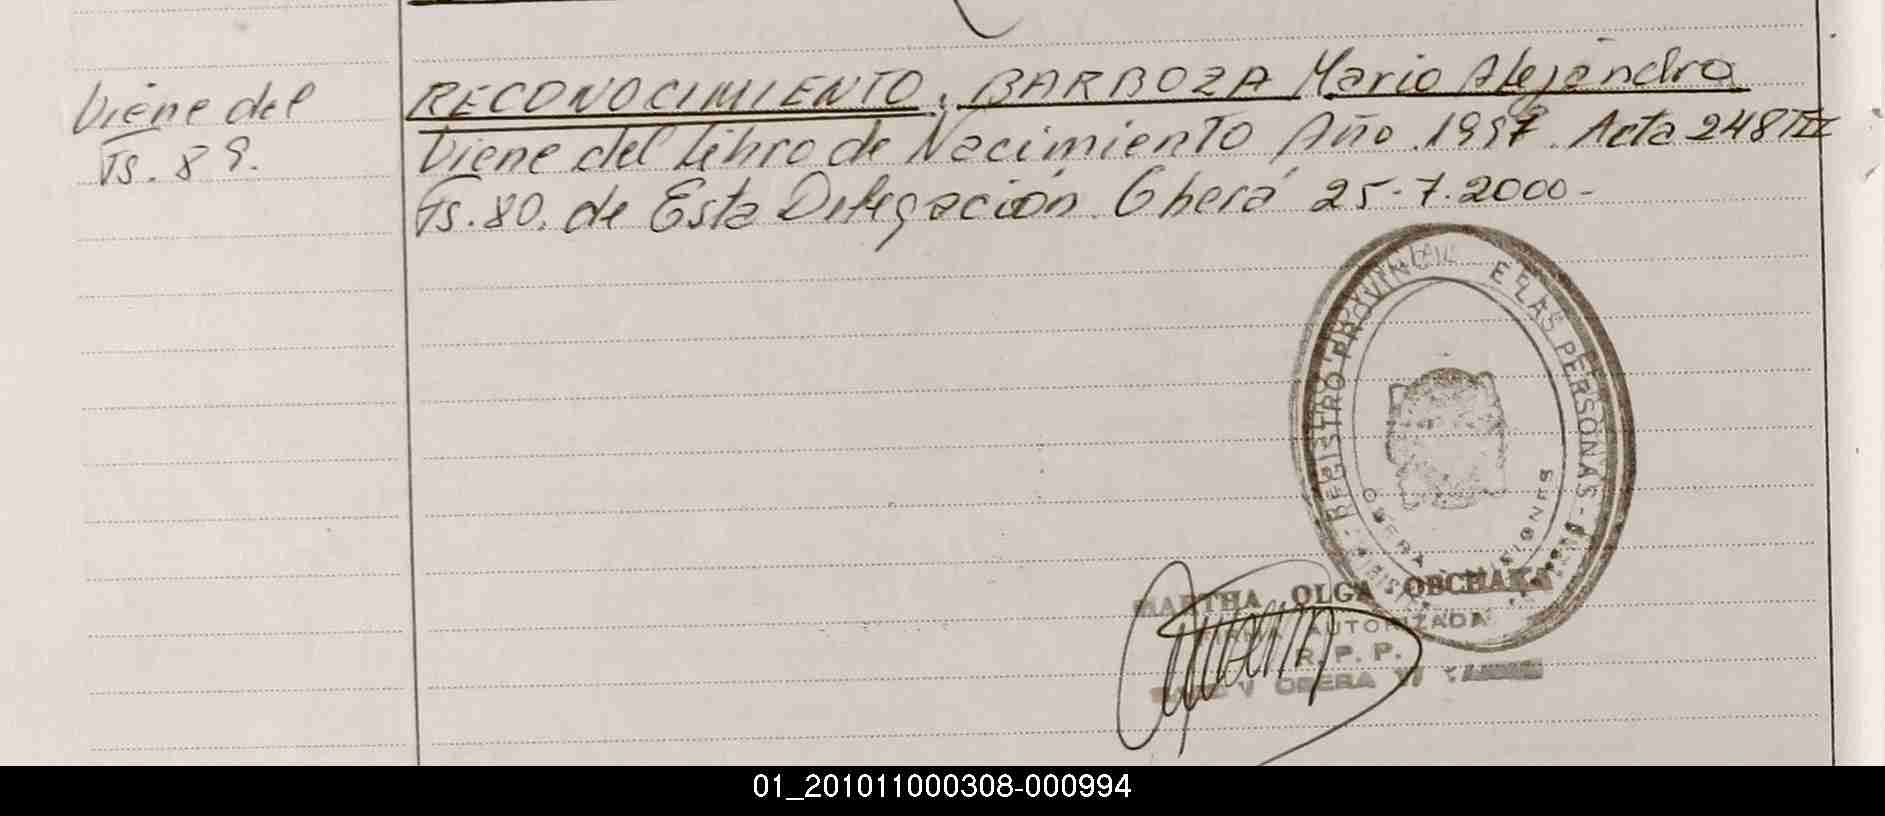 Viene del
Fs. 89.
RECONOCIMIENTO. BARBOZA Mario Alejandro
Viene del Libro de Nacimiento Año 1997. Acta 248 TII
Fs. 80. de Esta Delegación. Oberá 25-7-2000-
REGISTRO PROVINCIAL E LAS PERSONAS -
OBERA MISIONES
MARTHA OLGA OBCHAKA
FIRMA AUTORIZADA
R. P. P.
OBERA
01_201011000308-000994